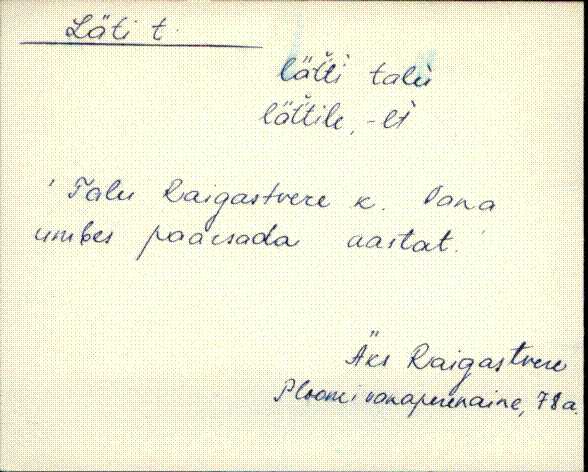 Läti t.
lät̆ti talu
lät̆tile, -lt
' Talu Raigastvere k. Vana
umbes paarsada aastat.'
Äks Raigastvere
Ploomi vanaperenaine, 78 a.